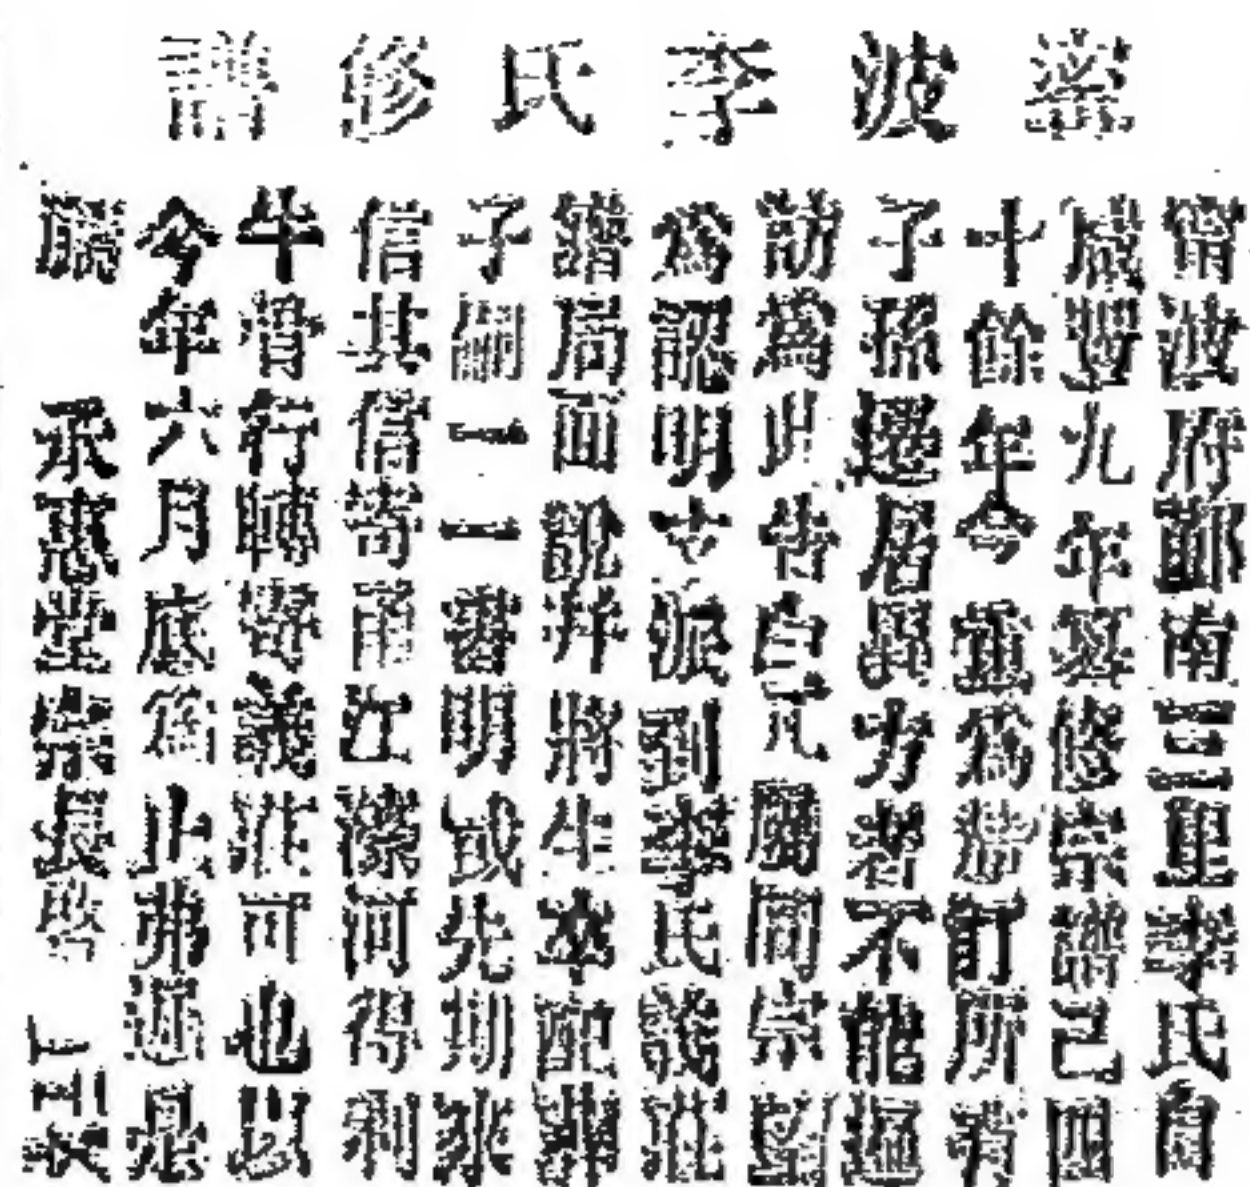 寧波李氏修譜
甯波府鄞南三里李氏自
咸豐九年纂修宗譜己四
十餘年今重為增訂所有
子孫遷居異方者不能遍
訪為此告白凡屬同宗望
為認明支派到李氏義莊
譜局面說并將生卒配葬
子嗣一一書明或先期來
信其信寄甬江濠河得利
牛骨行轉寄義莊可也以
今年六月底為止弗延是
禱 承惠堂宗長